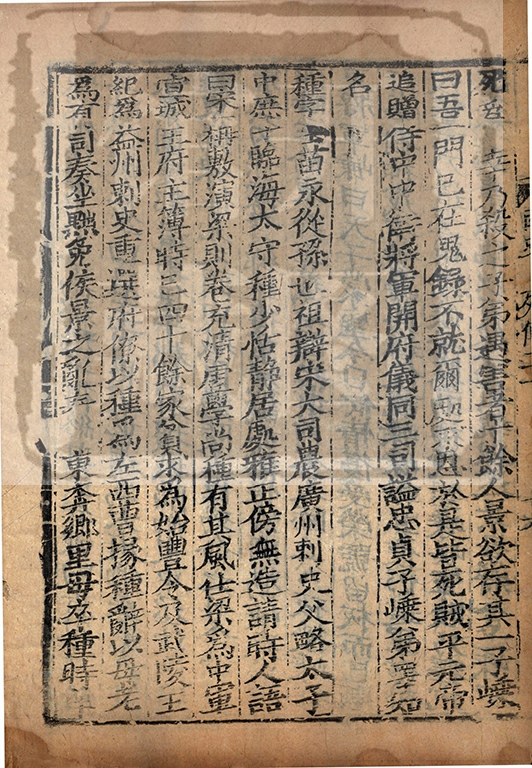 死爲幸乃殺之子弟遇害者十餘人景欲存其一子嵊
曰吾一門已在鬼錄不就爾處求恩於是皆死賊平元帝
追贈侍中中衛將軍開府儀同三司謚忠貞子嵊弟睪知
名
種字士苗永從孫也祖辯宋大司農廣州刺史父略太子
中庶子臨海太守種少恬靜居處雅正傍無造請時人語
曰宋稱敷演梁則卷充清虛學尚種有其風仕梁爲中軍
宣城王府主簿時三四十餘家貧求為始豊令及武陵王
紀爲益州刺史重選府僚以種爲左西曹掾種辭以母老
爲有司奏坐黜免侯景之亂奉東奔鄉里母卒種時年